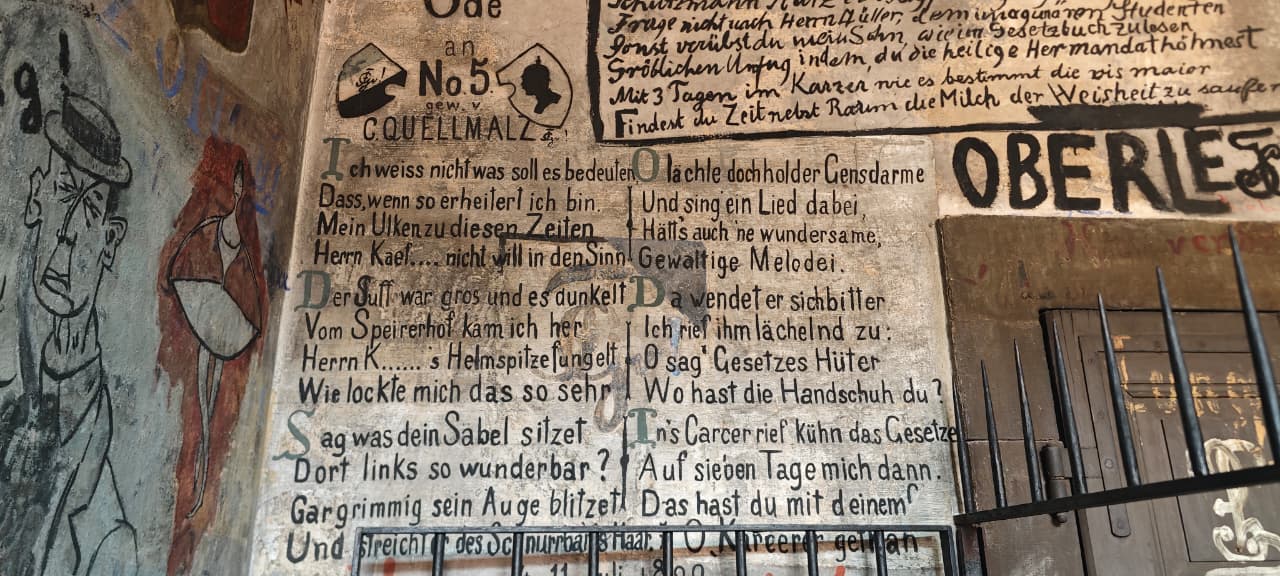 Ode
an
No. 5.
gew. v.
C. QUELLMALZ
Ich weiss nicht was soll es bedeuten
Dass, wenn so erheitert ich bin.
Mein Ulken zu diesen Zeiten
Herrn Kaef.... nicht will in den Sinn
Der Suff war gros und es dunkelt
Vom Speirerhof kam ich her
Herrn K...... s Helmspitze fungelt
Wie lockte mich das so sehr
Sag was dein Säbel sitzet
Dort links so wunderbar?
Gargrimmig sein Auge blitzet
Und streicht des Schnurrbarts Haar.
O lächle doch holder Gensdarme
Und sing ein Lied dabei,
Hätt's auch 'ne wundersame,
Gewaltige Melodei.
Da wendet er sich bitter
Ich rief ihm lächelnd zu:
O sag' Gesetzes Hüter
Wo hast die Handschuh du?
In's Carcer rief kühn das Gesetze
Auf sieben Tage mich dann.
Das hast du mit deinem
O K gethan
Frage nicht nach Herrn Müller, dem imaginären Studenten
Sonst verübst du mein Sohn, wie im Gesetzbuch zu lesen
Gröblichen Unfug indem, du die heilige Hermandat höhnest
Mit 3 Tagen im Karzer wie es bestimmt die vis maior
Findest du Zeit nebst Raum die Milch der Weisheit zu saufen
OBERLE
g!